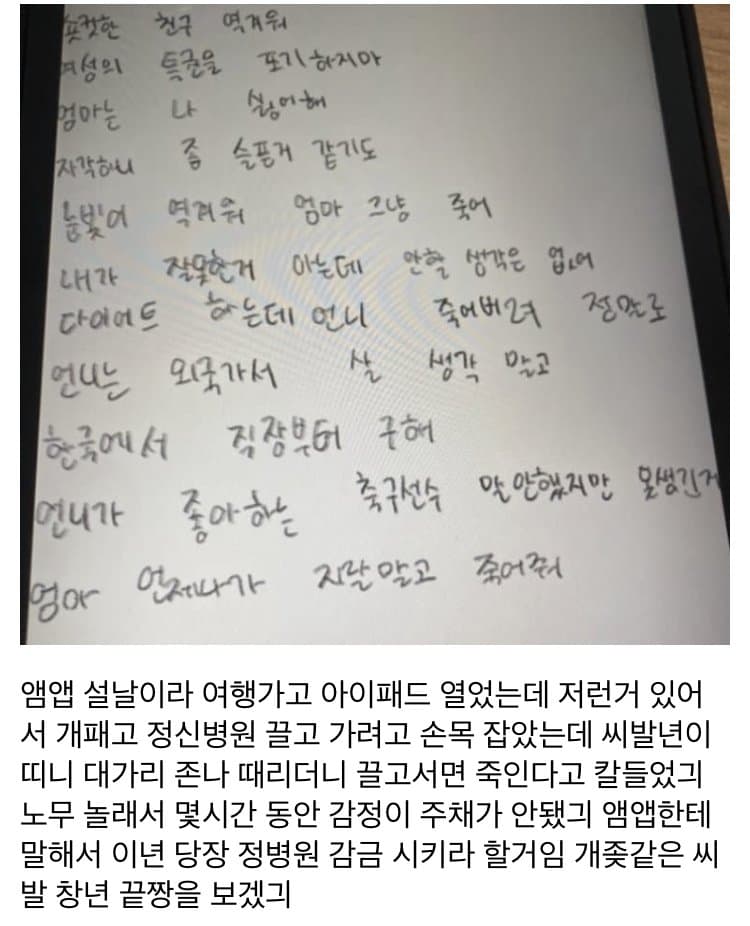 숏컷한 친구 역겨워
여성의 특권을 포기하지마
엄마는 나 싫어해
자각하니 좀 슬픈거 같기도
눈빛이 역겨워 엄마 그냥 죽어
내가 잘못한거 아는데 안할 생각은 없어
다이어트 하는데 언니 죽어버려 정말로
언니는 외국가서 살 생각 말고
한국에서 직장부터 구해
언니가 좋아하는 축구선수 말 안했지만 못생긴거
엄마 언제나가 지랄말고 죽어줘
앰앱 설날이라 여행가고 아이패드 열었는데 저런거 있어
서 개패고 정신병원 끌고 가려고 손목 잡았는데 씨발년이
띠니 대가리 존나 때리더니 끌고서면 죽인다고 칼들었긔
노무 놀래서 몇시간 동안 감정이 주채가 안됐긔 앰앱한테
말해서 이년 당장 정병원 감금 시키라 할거임 개좆같은 씨
발 창년 끝짱을 보겠긔